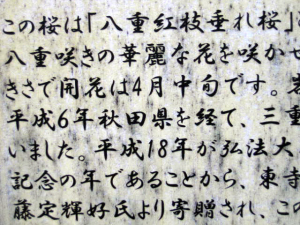 この桜は「八重紅枝垂れ桜」
八重咲きの華麗な花を咲かせ
きさで開花は4月中旬です。若
平成6年秋田県を経て、三重
いました。平成18年が弘法大
記念の年であることから、東寺
藤定輝好氏より寄贈され、この